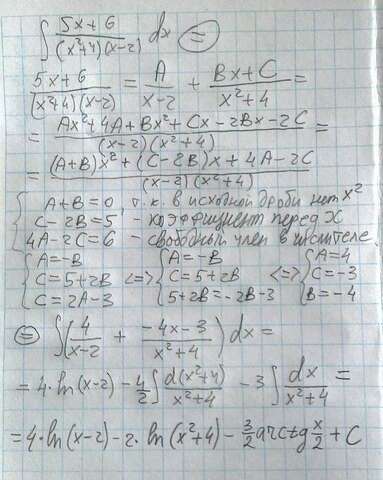 ∫ (5x+6)/((x²+4)(x-2)) dx ⊜
(5x+6)/((x²+4)(x-2)) = A/(x-2) + (Bx+C)/(x²+4) =
= (Ax²+4A+Bx²+Cx-2Bx-2C)/((x-2)(x²+4)) =
= ((A+B)x²+(C-2B)x+4A-2C)/((x-2)(x²+4))
{ A+B=0, т.к. в исходной дроби нет x²
C-2B=5, - коэффициент перед x
4A-2C=6 - свободный член в числителе
{ A=-B { A=-B { A=4
C=5+2B <=> C=5+2B <=> C=-3
C=2A-3 5+2B=-2B-3 B=-4
⊜ ∫(4/(x-2) + (-4x-3)/(x²+4)) dx =
= 4·ln(x-2) - 4/2 ∫ d(x²+4)/(x²+4) - 3 ∫ dx/(x²+4) =
= 4·ln(x-2) - 2·ln(x²+4) - 3/2 arctg x/2 + C